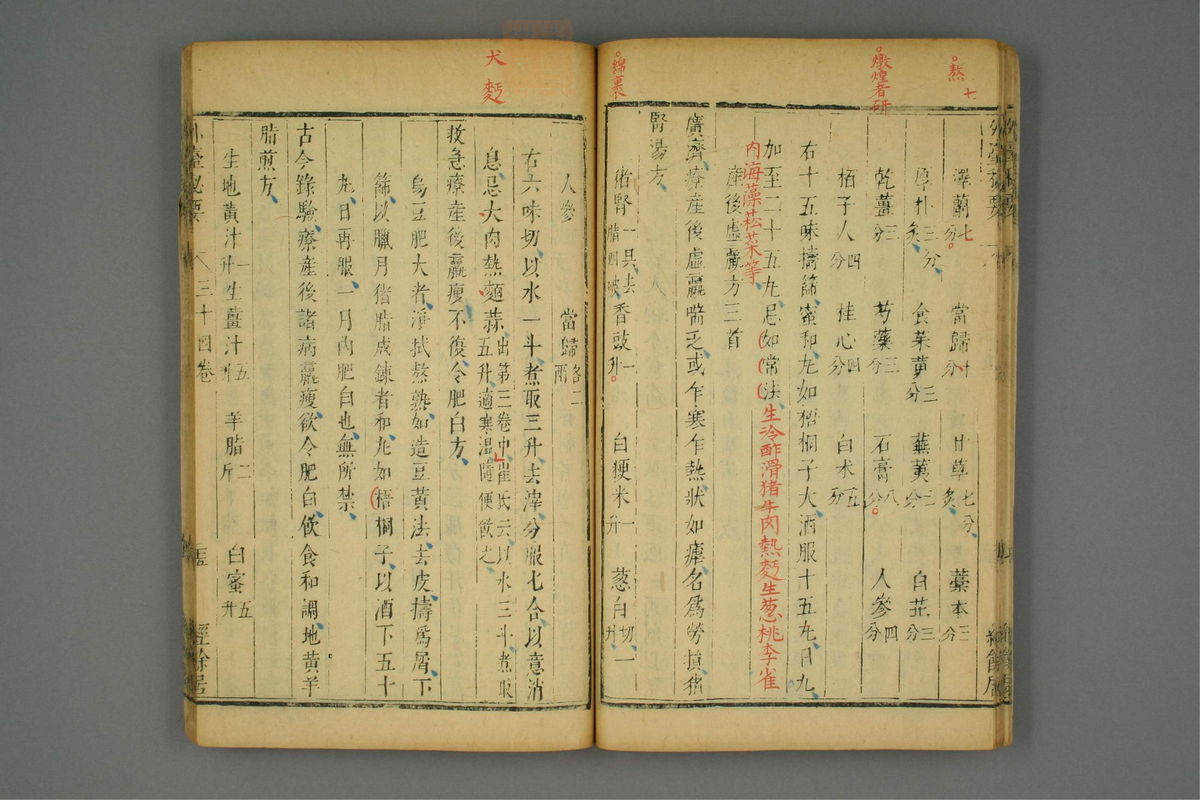 熬七
燉煌者研
綿裹
澤蘭七分 當歸十分 甘草七分炙 藁本三分
厚朴三分炙 食茱萸三分 蕪荑三分 白芷三分
乾薑三分 芎藭三分 石膏八分 人參四分
栢子人四分 桂心四分 白朮五分
右十五味擣篩蜜和丸如梧桐子大酒服十五丸日九
加至二十五丸忌如常法生冷酢滑猪牛肉熱麪生葱桃李雀
內海藻菘菜等
產後虛羸方三首
廣濟療產後虛羸喘乏或乍寒乍熱狀如瘧名爲勞損猪
腎湯方
猪腎一具去脂四破 香豉一升 白粳米一升 葱白切一升
犬 麪
人參 當歸各二兩
右六味切以水一斗煮取三升去滓分服七合以意消
息忌大肉熱麵蒜出第三卷中崔氏云以水三斗煮取五升適寒温隨便飲之
救急療產後羸瘦不復令肥白方
烏豆肥大者淨拭熬熟如造豆黃法去皮擣爲屑下
篩以臘月猪脂成鍊者和丸如梧桐子以酒下五十
丸日再服一月內肥白也無所禁
古今錄驗療產後諸病羸瘦欲令肥白飲食和調地黃羊
脂煎方
生地黃汁一升 生薑汁五升 羊脂二斤 白蜜五升
外臺秘要 三十四卷 五 經餘居